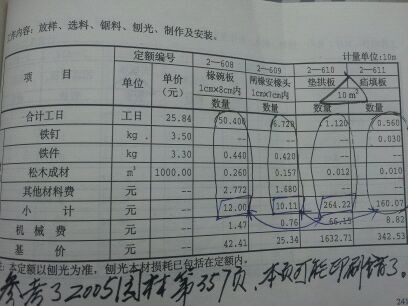 工作内容：放样、选料、锯料、刨光、制作及安装。
计量单位：10m
定额编号 2—608 2—609 2—610 2—611
项目 单位 单价（元） 椽碗板 1cm×8cm内 闸椽安椽头 1cm×7cm内 垫拱板 疝填板
10m²
数量 数量 数量 数量
合计工日 工日 25.84 50.400 6.720 1.120 0.560
铁钉 kg 3.50 -- -- -- 0.030
铁件 kg 3.30 0.440 0.420 -- --
松木成材 m³ 1000.00 0.260 0.157 0.012 0.010
其他材料费 元 -- 2.772 1.680 -- --
小计 元 -- 12.00 10.11 264.22 160.07
机械费 元 -- 1.47 0.76 66.15 8.82
基价 元 -- 42.41 25.34 1632.71 342.53
注：本定额以刨光为准，刨光木材损耗已包括在定额内。
参考了2005教材第357页，本页可能印刷错了。